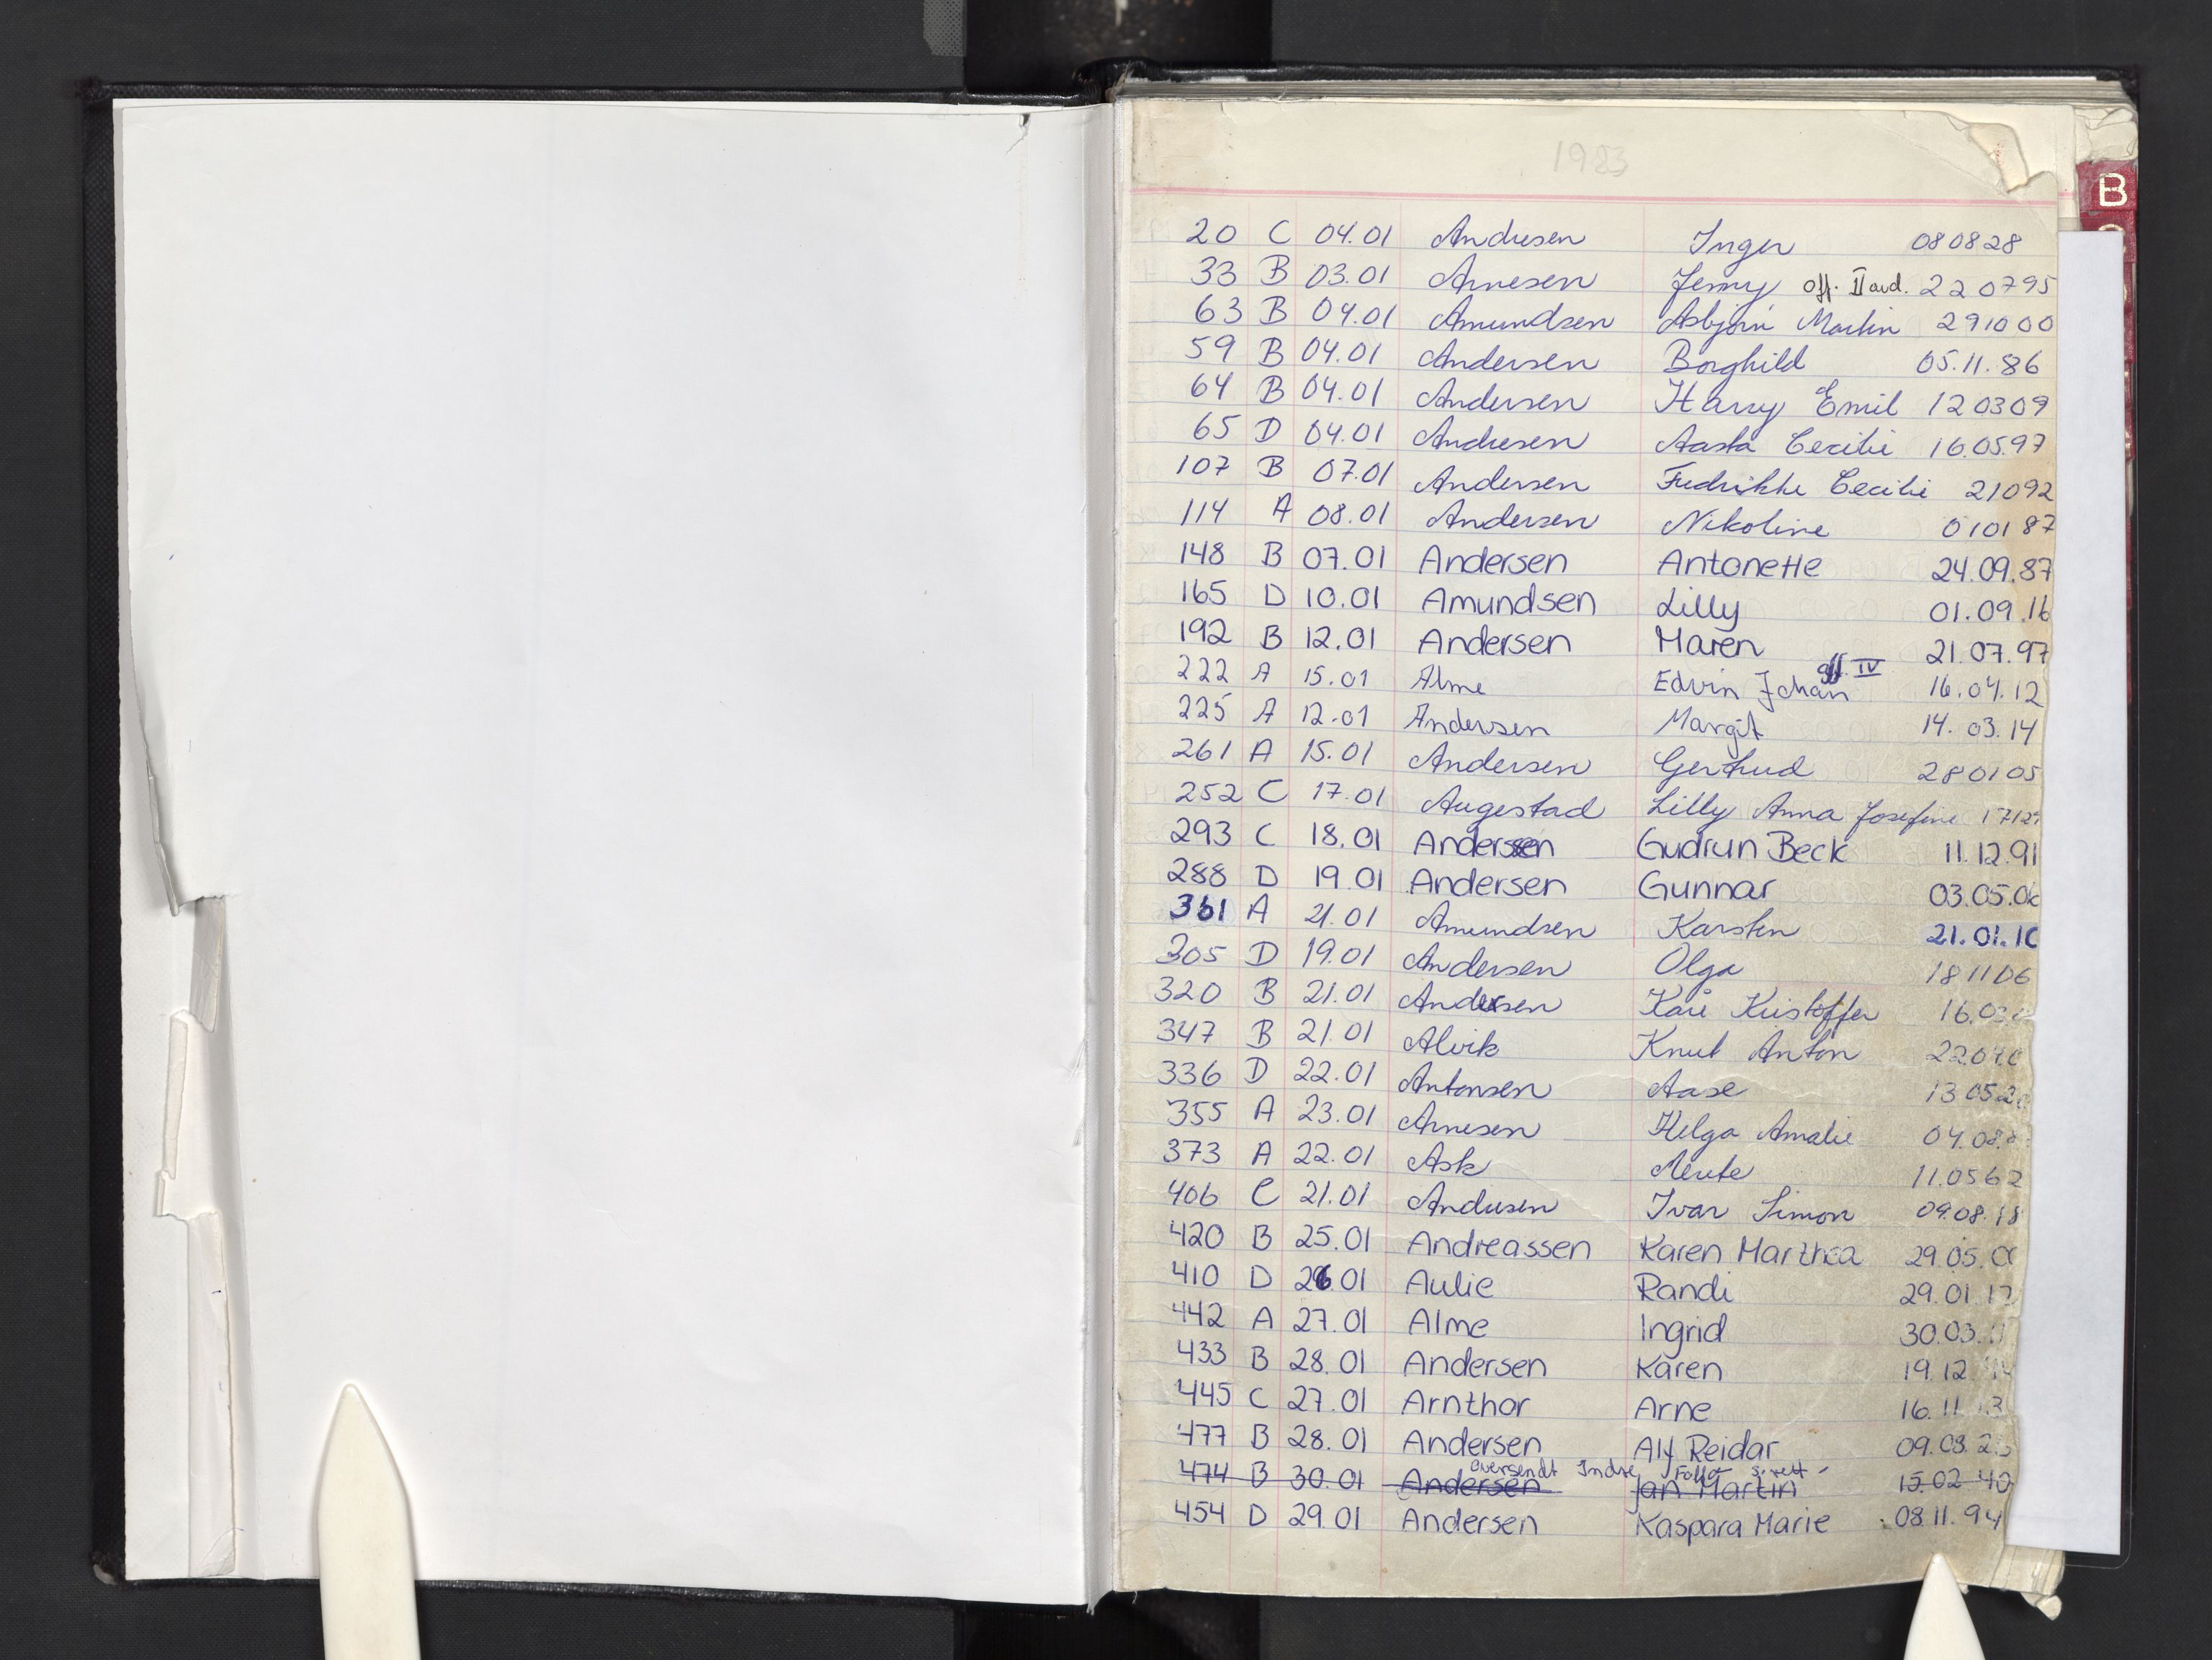 1983
B
20 C 04.01 Andresen Inger 080828
33 B 03.01 Arnesen Jenny off. II avd. 220795
63 B 04.01 Amundsen Asbjørn Martin 291000
59 B 04.01 Andersen Borghild 05.11.86
64 B 04.01 Andersen Harry Emil 120309
65 D 04.01 Andresen Aasta Cecilie 16.05.97
107 B 07.01 Andersen Fredrikke Cecilie 21092
114 A 08.01 Andersen Nikoline 010187
148 B 07.01 Andersen Antonette 24.09.87
165 D 10.01 Amundsen Lilly 01.09.16
192 B 12.01 Andersen Maren 21.07.97
222 A 15.01 Alme Edvin Johan off. IV 16.04.12
225 A 12.01 Andersen Margit 14.03.14
261 A 15.01 Andersen Gerthud 280105
252 C 17.01 Augestad Lilly Anna Josefine 1712
293 C 18.01 Andersen Gudrun Beck 11.12.91
288 D 19.01 Andersen Gunnar 03.05.0
361 A 21.01 Amundsen Karsten 21.01.1
305 D 19.01 Andersen Olga 181106
320 B 21.01 Andersen Kåre Kristoffer 16.03
347 B 21.01 Alvik Knut Anton 2204
336 D 22.01 Antonsen Aase 13.052
355 A 23.01 Arnesen Helga Amalie 04.08.
373 A 22.01 Ask Merete 11.0562
406 C 21.01 Andresen Ivar Simon 09.08.18
420 B 25.01 Andreassen Karen Marthea 29.05.0
410 D 26.01 Aulie Randi 29.01.12
442 A 27.01 Alme Ingrid 30.03.
433 B 28.01 Andersen Karen 19.12.14
445 C 27.01 Arnthor Arne 16.11.13
477 B 28.01 Andersen Alf Reidar 09.08.2
oversendt Indre Follo s.rett
474 B 30.01 Andersen Jan Martin 15.02.40
454 D 29.01 Andersen Kaspara Marie 08.11.94